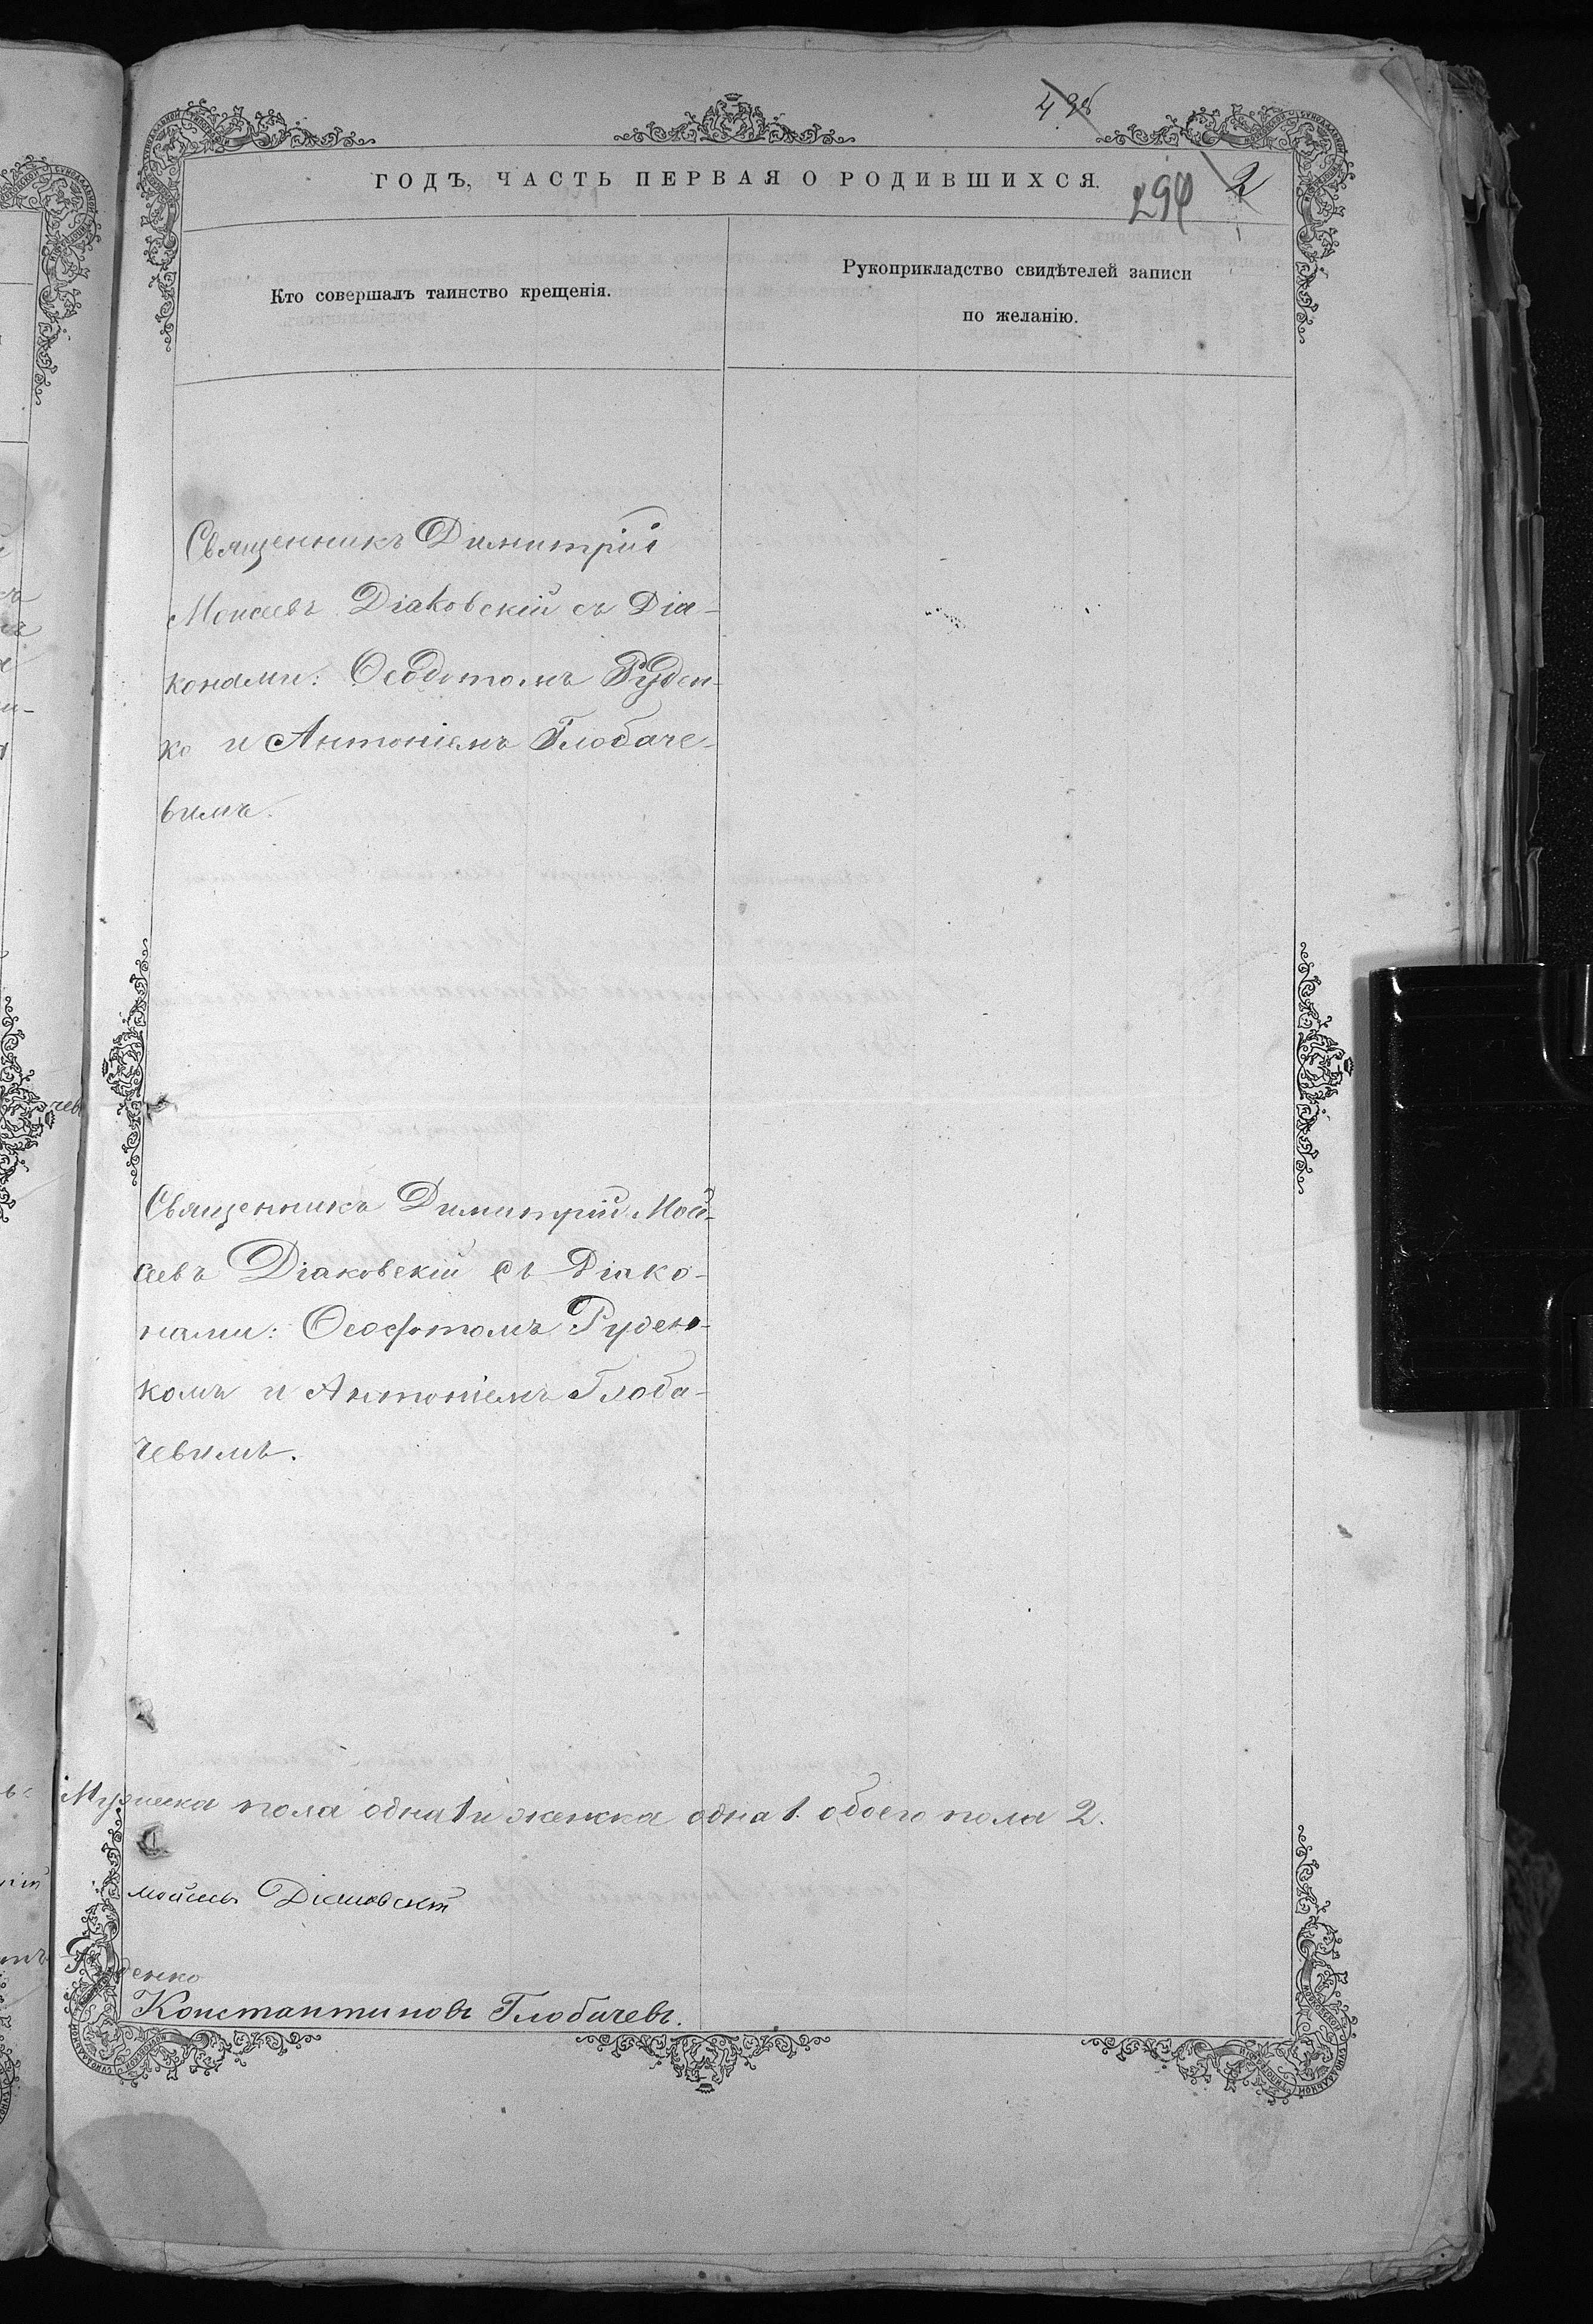 498
ГОДЪ, ЧАСТЬ ПЕРВАЯ О РОДИВШИХСЯ.
294 2
Кто совершалъ таинство крещенія.
Рукоприкладство свидѣтелей записи
по желанію.
Священникъ Димитрій
Моисеевъ Діаковскій съ Діа-
конами: Ѳеодотомъ Руден-
ко и Антоніемъ Глобаче-
вимъ.
Священникъ Димитрій Мой-
сеевъ Діаковскій съ Діако-
нами: Ѳеодотомъ Руден-
комъ и Антоніемъ Глоба-
чевимъ.
Мужеска пола одна 1 и женска одна 1. обоего пола 2.
Діаковскій
Руденко
Константиновъ Глобачевъ.